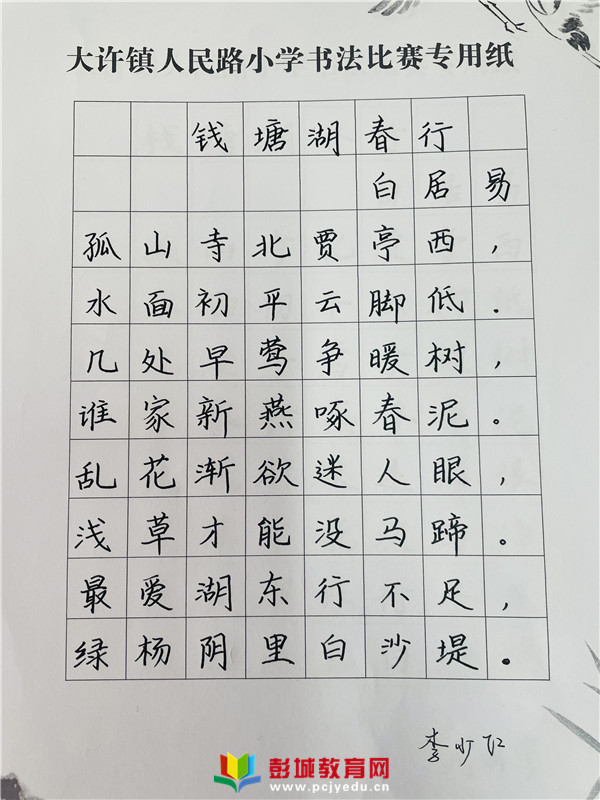 大许镇人民路小学书法比赛专用纸
钱塘湖春行
白居易
孤山寺北贾亭西,
水面初平云脚低.
几处早莺争暖树,
谁家新燕啄春泥。
乱花渐欲迷人眼,
浅草才能没马蹄。
最爱湖东行不足,
绿杨阴里白沙堤。
李
彭城教育网
www.pcjyedu.cn